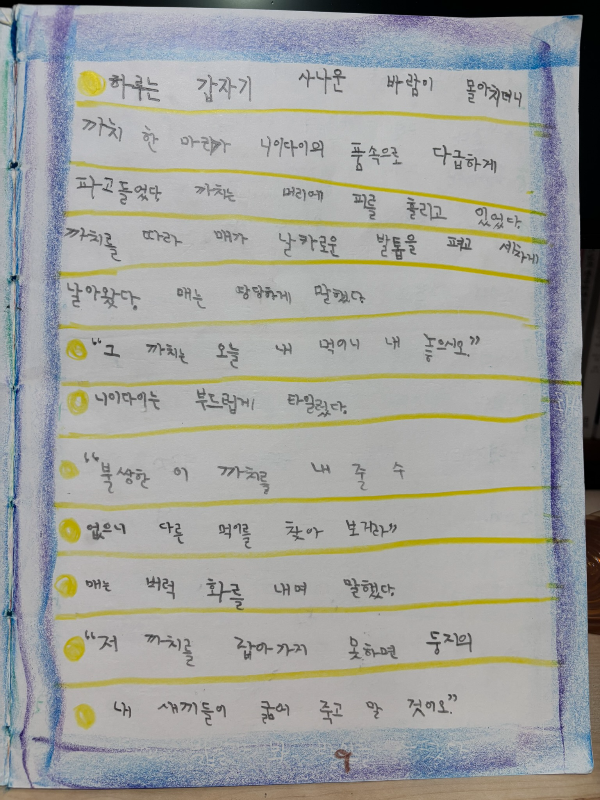 하루는 갑자기 사나운 바람이 몰아치더니
까치 한 마리가 니이다이의 품속으로 다급하게
파고들었다 까치는 머리에 피를 흘리고 있었다.
까치를 따라 매가 날카로운 발톱을 펴고 세차게
날아왔다. 매는 당당하게 말했다
“그 까치는 오늘 내 먹이니 내 놓으시오.”
니이다이는 부드럽게 타일렀다.
“불쌍한 이 까치를 내 줄 수
없으니 다른 먹이를 찾아 보거라”
매는 버럭 화를 내며 말했다.
“저 까치를 잡아가지 못하면 둥지의
내 새끼들이 굶어 죽고 말 것이오.”
9